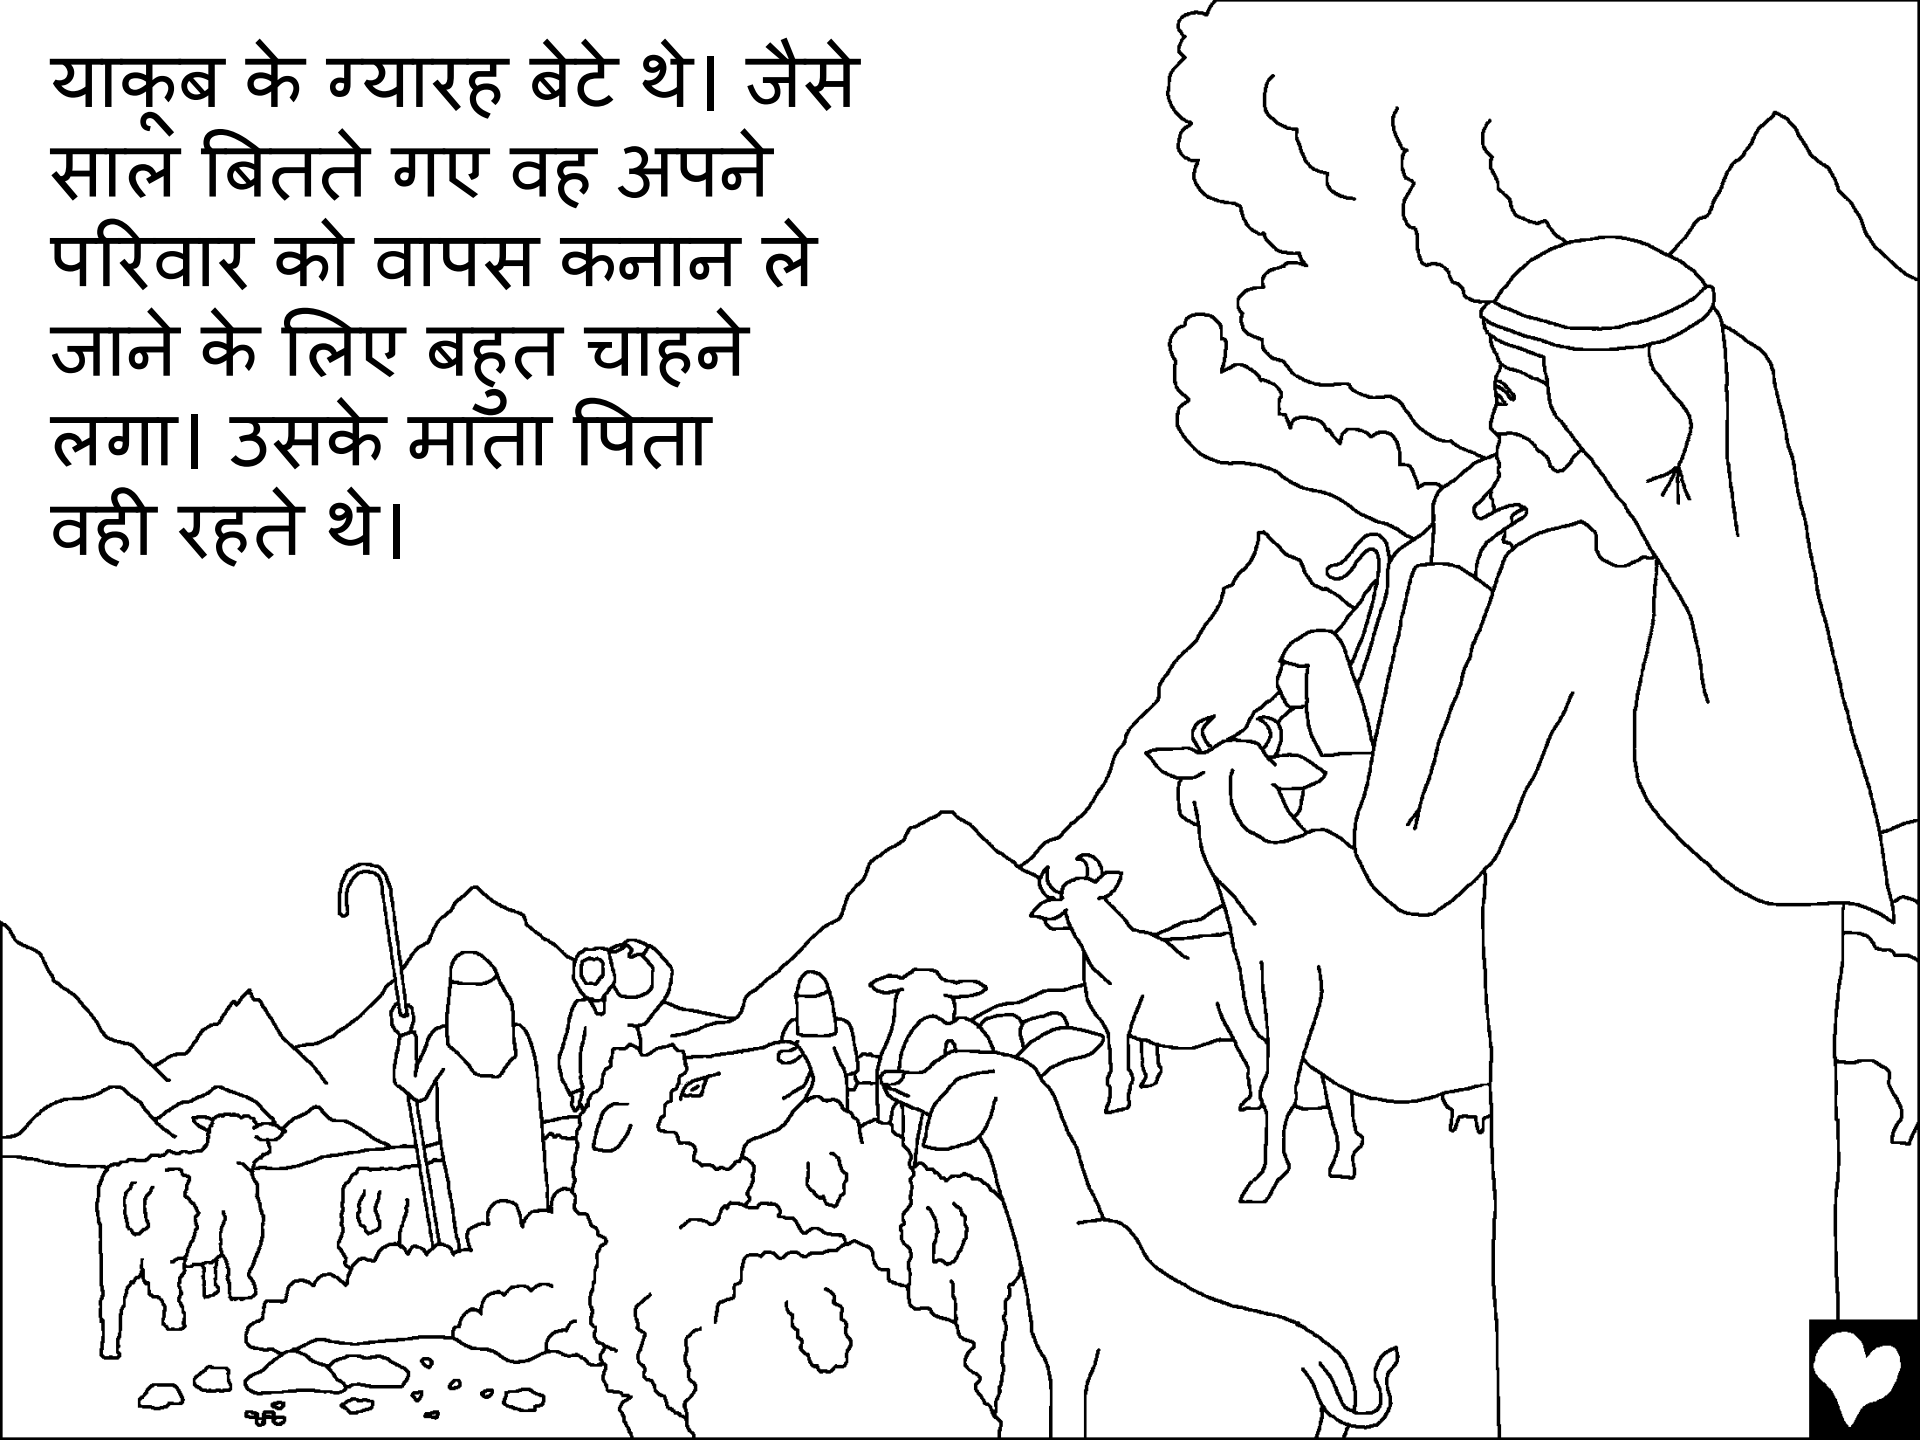 याकूब के ग्यारह बेटे थे। जैसे
साल बितते गए वह अपने
परिवार को वापस कनान ले
जाने के लिए बहुत चाहने
लगा। उसके माता पिता
वही रहते थे।